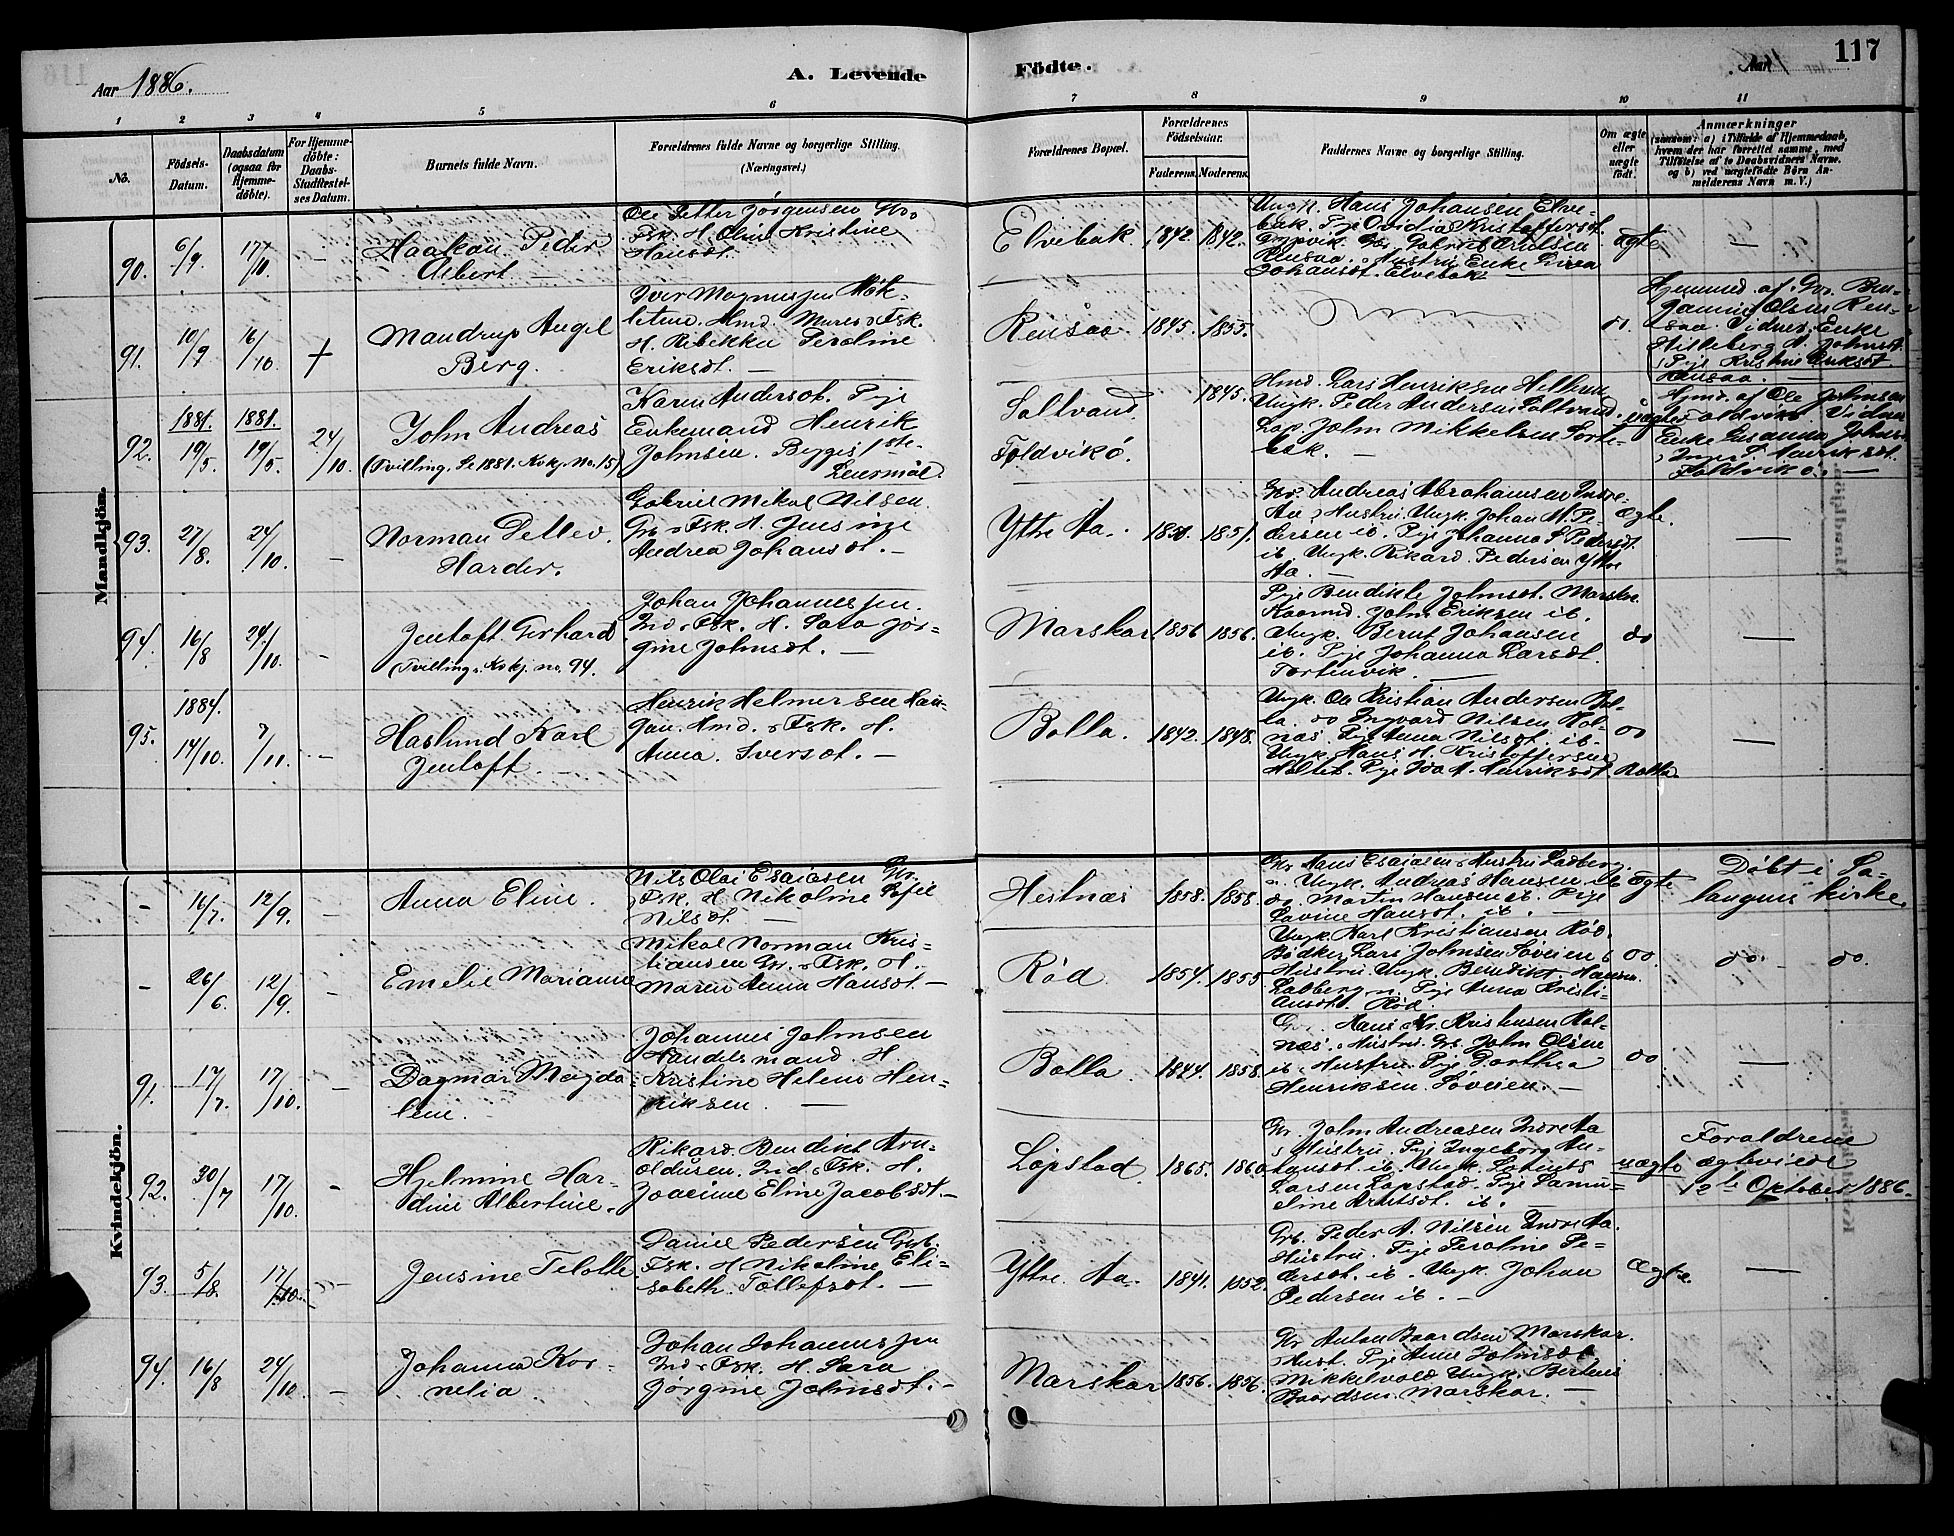 Aar 1886.
A. Levende
Födte.
Aar
117
1 2 3 4 5 6 7 8 9 10 11
No.
Födsels-Datum.
Daabsdatum (ogsaa for Hjemmedöbte).
For Hjemmedöbte: Daabs-Stadfæstelses Datum.
Barnets fulde Navn.
Forældrenes fulde Navne og borgerlige Stilling. (Næringsvei.)
Forældrenes Bopæl.
Forældrenes Födselsaar.
Faderens. Moderens.
Faddernes Navne og borgerlige Stilling.
Om ægte eller uægte födt.
Anmærkninger
(saasom: a) i Tilfælde af Hjemmedaab, hvem der har forrettet samme, med Tilföielse af to Daabsvidners Navne, og b) ved uægtefödte Börn Anmelderens Navn m. V.)
Mandkjön.
90. 6/9 17/10 –
Haakan Peder
Albert –
Ole Petter Jørgensen Gbr.
Fsk. H. Oline Kristine
Hansdt.
Elvebak 1842 1842.
Ungk. Hans Johansen Elve-
bak. Pige Ovidia Kristoffersdt.
Johansdt. Elvebak
ægte –
91. 10/9 16/10 +
Mandrup Angel
Berg.
Iver Magnussen Møk-
leture. Hmd. Murer & Fsk.
H. Rebekka Peroline
Eriksdt. –
Rensaa. 1845. 1855.
do.
Hjemmed. af Gbr. Ben-
jamin Olsen Ren-
saa. Vidner: Enke
Hilleberg A. Johnsdt.
Pige Kristine Eriksdt.
Rensaa.
92. 1881. 19/5. 1881. 19/5. 24/10.
John Andreas
(Tvilling. Se 1881. Kvkj. No. 15)
Karen Andersdt. Pige
Enkemand Henrik
Johnsen. Begges 1ste
Leiermål.
Saltvand.
Foldvikø.
1845.
Hmd. Lars Henriksen
Ungk. Peder Andersen Saltvand.
Lap John Mikkelsen Sorte-
bek. –
uægte
Hjmd. af Ole Johnsen
Foldvikø. Vidner
Enke Susanna Johns-
Inger S. Henriksdt.
Foldvikø. –
93. 27/8. 24/10. –
Norman Detlev.
Harder.
Gabriel Mikal Nilsen.
Gbr. & Fsk. H. Jensine
Andrea Johansdt. –
Ytre Aa. 1850. 1851.
Gbr. Andreas Abrahamsen Indre-
Aa & Hustru. Ungk. Johan A. Pe-
dersen ib. Pige Johanna P. Pedersdt.
ib. Ungk. Rikard Pedersen Ytre
Aa. –
Ægte. –
94. 16/8 24/10. –
Jentoft Gerhard
(Tvilling. Kvkj. no. 94.
Johan Johannessen.
Ind. & Fsk. H. Sara Jør-
gine Johnsdt. –
Marskar 1856 1856.
Pige Bendikte Johnsdt. Marskar.
Kaarmd. John Eriksen ib.
Ungk. Bernt Johansen
ib. Pige Johanna Larsdt.
Tortenvik. –
do –
95. 1884. 14/10. 7/11. –
Haslund Karl
Jentoft.
Henrik Helmersen Hau-
gan. Hmd. & Fsk. H.
Anna. Iversdt. –
Bolla. 1842. 1848.
Ungk. Ole Kristian Andersen Bol-
la. do Ingvard Nilsen Hol-
næs. Pige Anna Nilsdt. ib.
Ungk. Hans A. Kristoffersen
Holtet. Pige Ida A. Henriksdt. Rolla.
do –
Kvindekjön.
– 16/7. 12/9. –
Anna Eline.
Nils Olai Esaiasen Gbr.
& Fsk. H. Nikoline Sofie
Nilsdt. –
Hestnæs 1858. 1858.
Gbr. Hans Esaiasen & Hustru Ladberg.
Ungk. Andreas Hansen ib
do. Martin Hansen ib. Pige
Lavine Hansdt. ib. –
ægte
Døbt i Sa-
langens kirke.
– 26/6 12/9. –
Emelie Marianne
Mikal Norman Kris-
tiansen Gbr. & Fsk. H.
Maren Anna Hansdt. –
Rød. 1854. 1855
Ungk. Karl Kristiansen Rød.
Bødker Lars Johnsen Søveien &
Hustru Ungk. Benedikt Hansen
Ladberg. Pige Anna Kristi-
ansdt. Rød.
do. do – do.
91. 17/7. 17/10. –
Dagmar Magda-
lene.
Johannes Johnsen
Handelsmand. H.
Kristine Helene Hen-
riksen. –
Bolla. 1844. 1858.
Gbr. Hans Kr. Kristensen Hol-
næs. & Hustru. Gbr. John Olsen
ib & Hustru. Pige Dorthea
Henriksen. Søveien. –
do –
92. 30/7 17/10. –
Hjelmine Har-
dine Albertine.
Rikard. Bendikt Arn-
oldusen. Ind. & Fsk. H.
Joacime Eline Jacobsdt. –
Løpstad. 1865. 1860
Gbr. John Andreasen Indre Aa
& Hustru. Pige Ingeborg An-
tonsdt. ib. Ungk. Latents
Larsen Løpstad. Pige Samu-
eline Arntsdt. ib.
uægte
Forældrene
ægteviede
12te October 1886.
93. 5/8. 17/10. –
Jensine Telotte
Daniel Pedersen Gbr.
Fsk. H. Nikoline Eli-
sabeth. Tollefsdt. –
Ytre. Aa. 1841. 1852.
Gbr. Peder A. Nilsen Indre Aa.
Hustru. Pige Peroline Pe-
dersdt. ib. Ungk. Johan
Pedersen ib. –
Ægte. –
94. 16/8 24/10 –
Johanna Kor-
nelia.
Johan Johannessen
Ind. & Fsk. H. Sara
Jørgine Johnsdt. –
Marskar 1856. 1856.
Gbr Anton Baardsen Marskar.
& Hust. Pige Anne Johnsdt
Mikkelvold Ungk. Berteus
Baardsen. Marskar. –